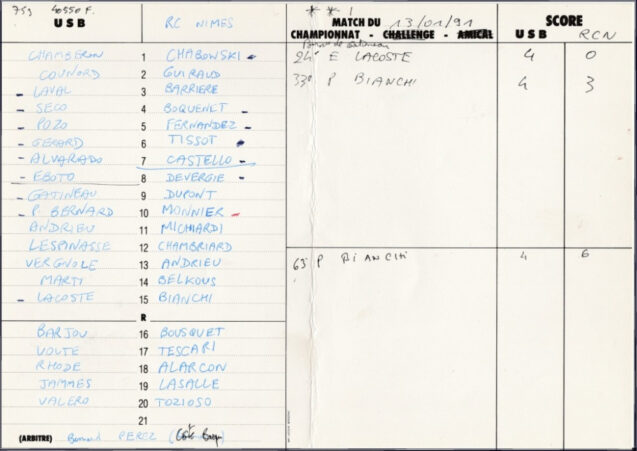 753 40550 F.
USB RC NIMES
* * 1
MATCH DU 13/01/91
CHAMPIONNAT - CHALLENGE - AMICAL
SCORE
USB RCN
CHAMBERON 1 CHABOWSKI -
COUNORD 2 GUIRAUD
- LAVAL 3 BARRIERE
- SECO 4 BOQUENET -
- POZO 5 FERNANDEZ -
- GERARD 6 TISSOT -
- ALVARADO 7 CASTELLO -
- EBOTO 8 DEVERGIE -
- GATINEAU 9 DUPONT
- P BERNARD 10 MONNIER -
ANDRIEU 11 MICHIARDI
LESPINASSE 12 CHAMBRIARD
VERGNOLE 13 ANDRIEU
MARTI 14 BELKOUS
- LACOSTE 15 BIANCHI
R
BARJOU 16 BOUSQUET
VOLTE 17 TESCARI
RHODE 18 ALARCON
JAMMES 19 LASALLE
VALERO 20 TOZIOSO
21
(ARBITRE) Bernard PEREZ (Côte
24' E LACOSTE 4 0
33' P BIANCHI 4 3
63' P BIANCHI 4 6